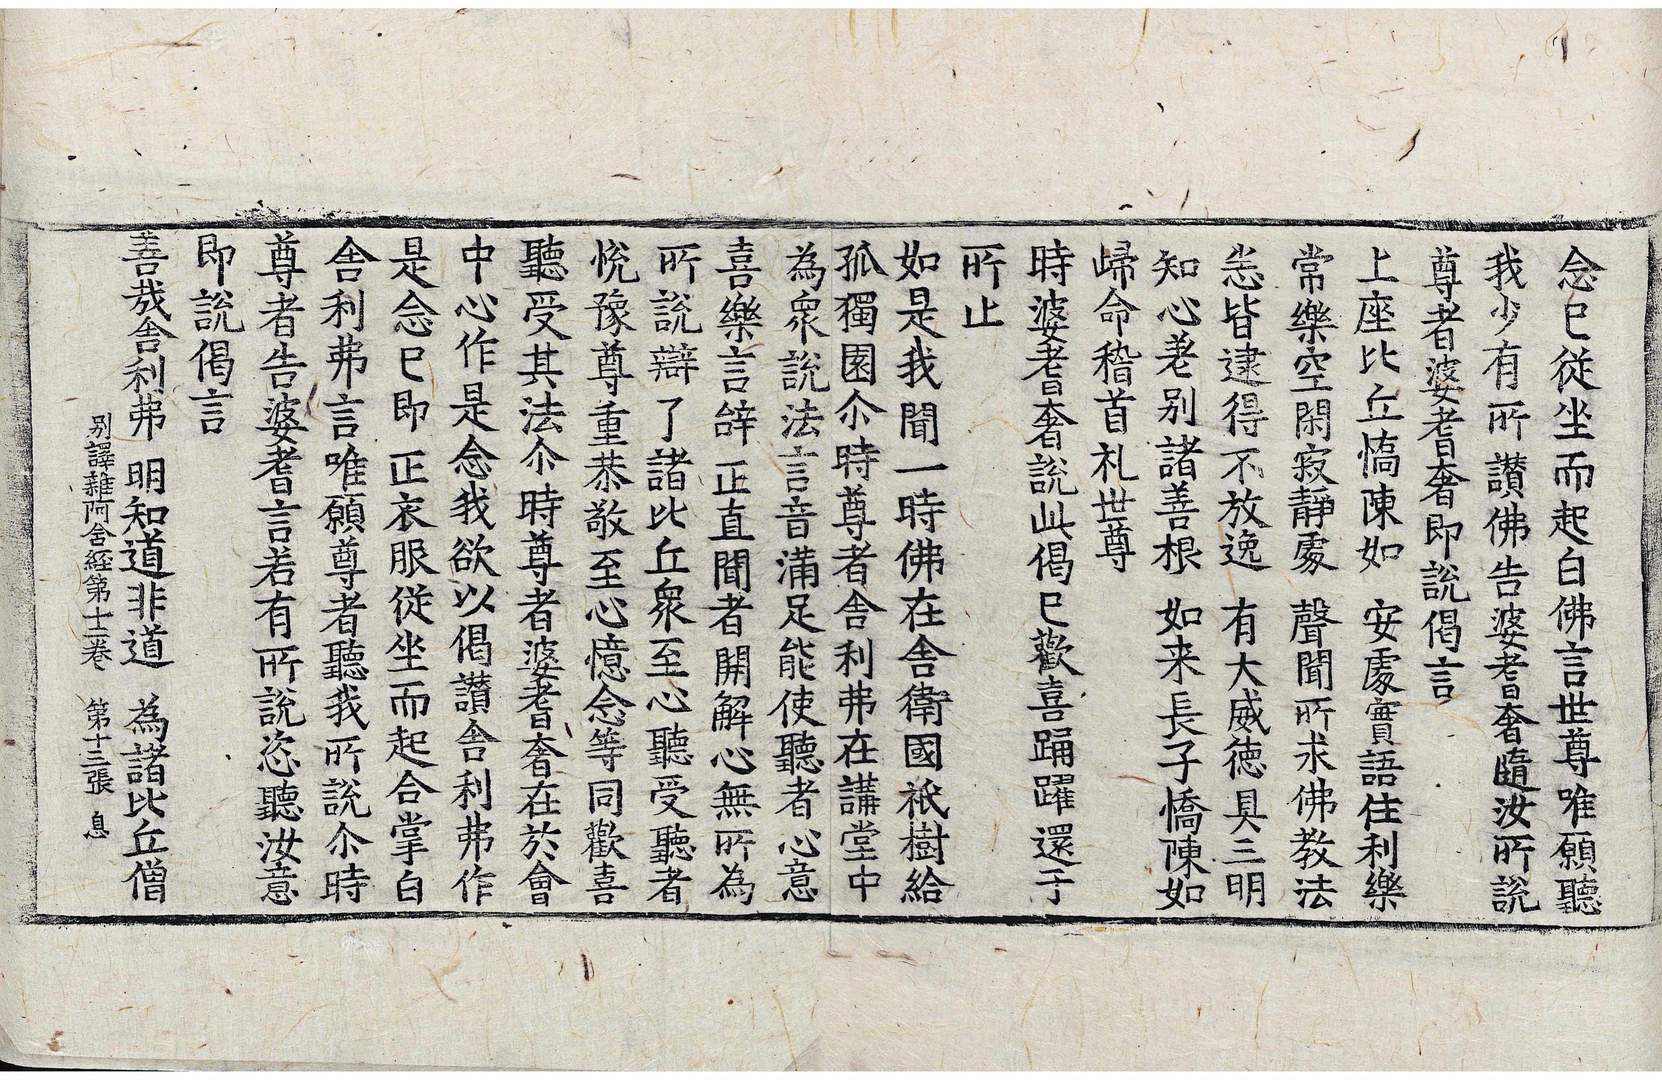 念已從坐而起白佛言世尊唯願聽
我少有所讃佛告婆耆奢隨汝所說
尊者婆耆奢即說偈言
上座比丘憍陳如 安處實語住利樂
常樂空閑寂靜處 聲聞所求佛教法
悉皆逮得不放逸 有大威德具三明
知心差別諸善根 如来長子憍陳如
歸命稽首礼世尊
時婆耆奢說此偈已歡喜踊躍還于
所止
如是我聞一時佛在舍衛國祇樹給
孤獨園尒時尊者舍利弗在講堂中
為衆說法言音滿足能使聽者心意
喜樂言辝正直聞者開解心無所為
所說辯了諸比丘衆至心聽受聽者
悅豫尊重恭敬至心憶念等同歡喜
聽受其法尒時尊者婆耆奢在於會
中心作是念我欲以偈讃舍利弗作
是念已即正衣服從坐而起合掌白
舍利弗言唯願尊者聽我所說尒時
尊者告婆耆言若有所說恣聽汝意
即說偈言
善哉舍利弗 明知道非道 為諸比丘僧
別譯雜阿含經第十二卷 第十三張 息